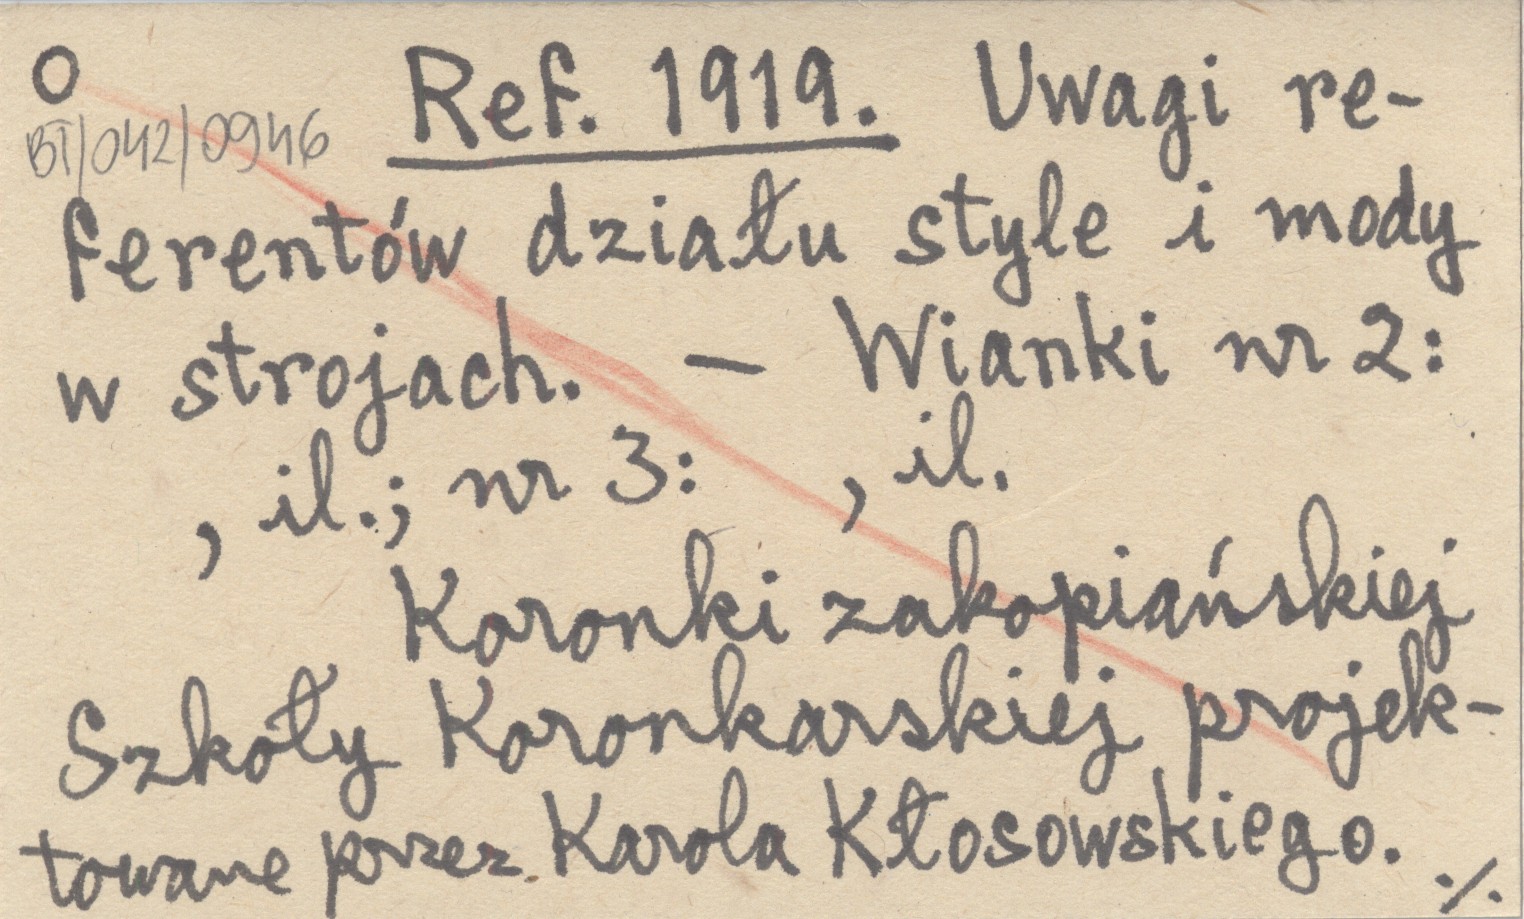 O
BT/042/0946
Ref. 1919. Uwagi re-
ferentów działu style i mody
w strojach. — Wianki nr 2:
, il.; nr 3: , il.
Koronki zakopiańskiej
Szkoły Koronkarskiej projek-
towane przez Karola Kłosowskiego.
./.